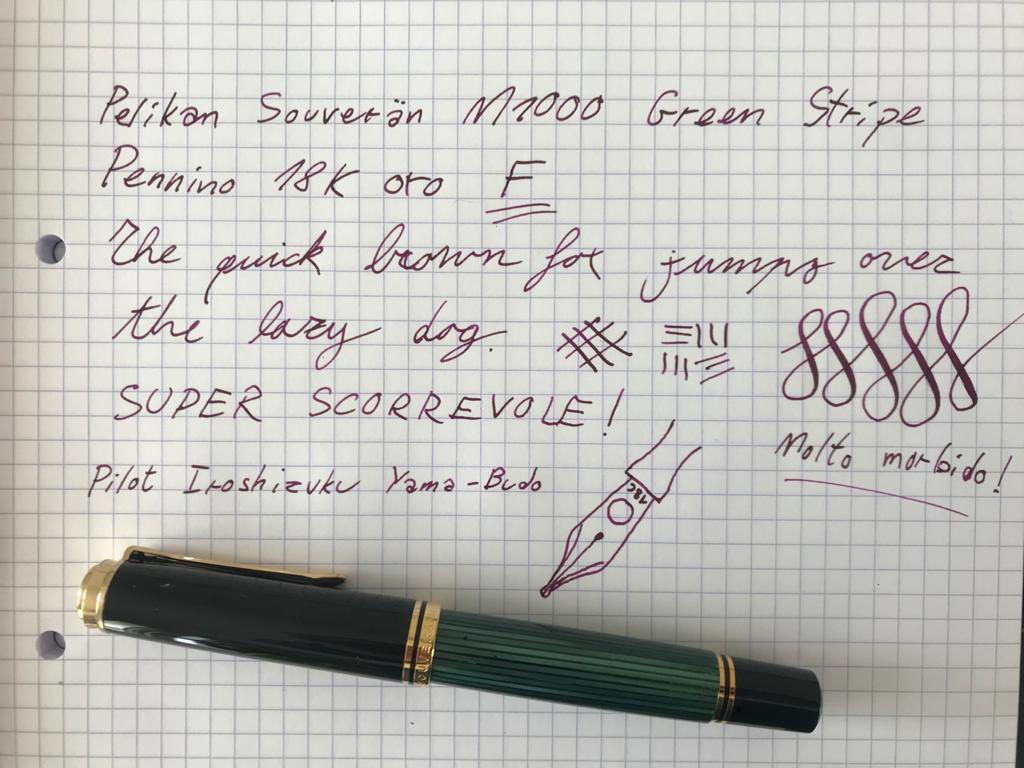 Pelikan Souverän M1000 Green Stripe
Pennino 18K oro F
The quick brown fox jumps over
the lazy dog.
SUPER SCORREVOLE!
Molto morbido!
Pilot Iroshizuku Yama-Budo
18C